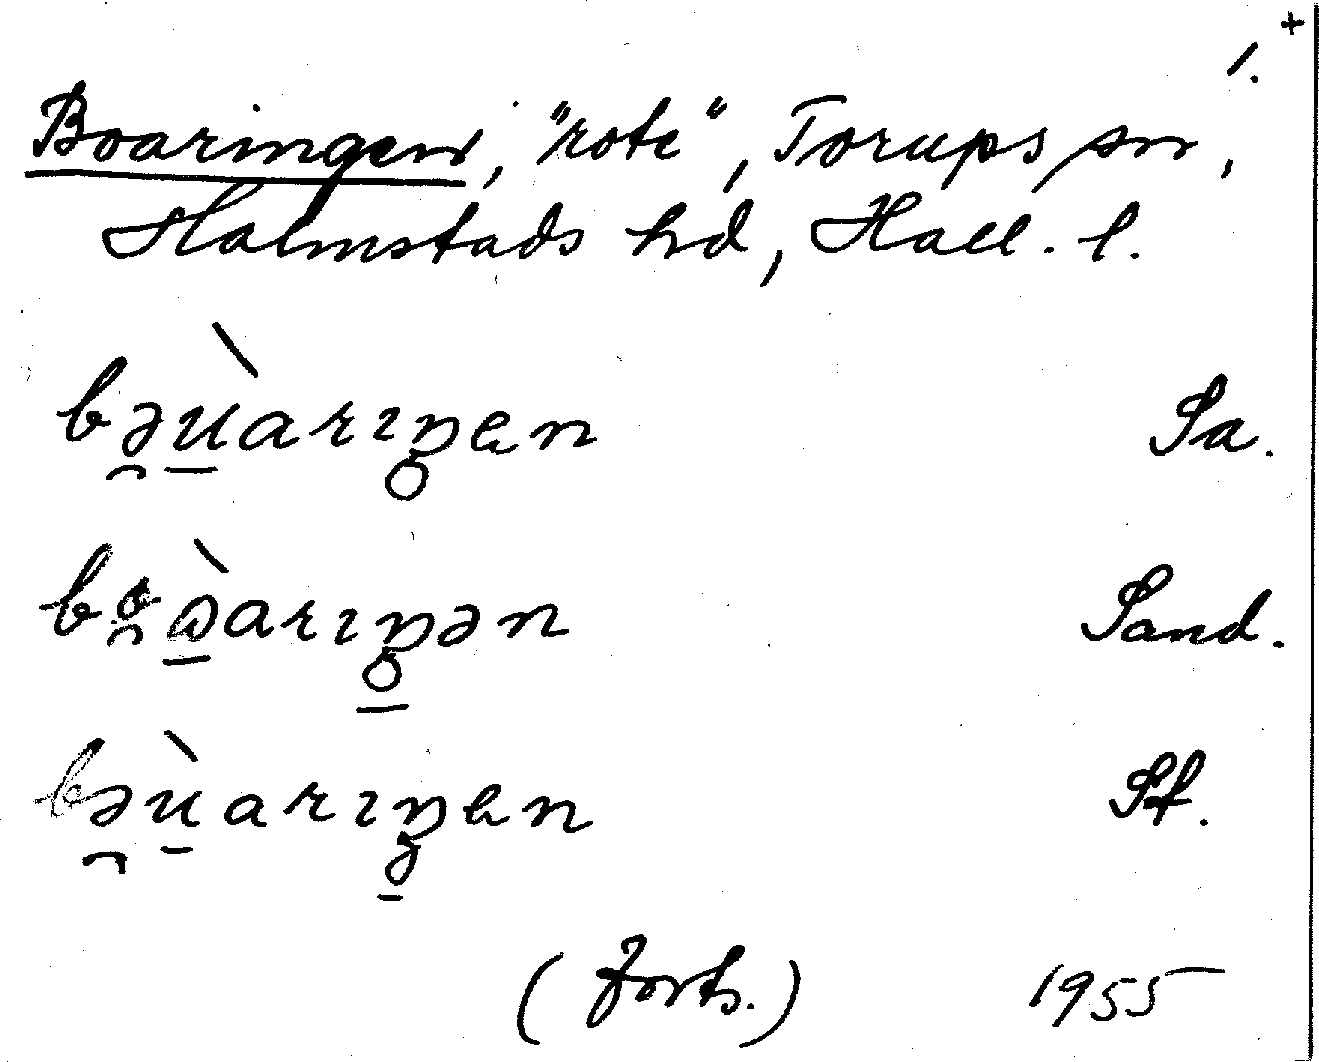 +
1.
Boaringen, "rote", Torups sn,
Halmstads hd, Hall. l.
bə̯ù̲arıŋen Sa.
Sand.
bə̯ù̲arıŋen Sf.
(Forts.) 1955